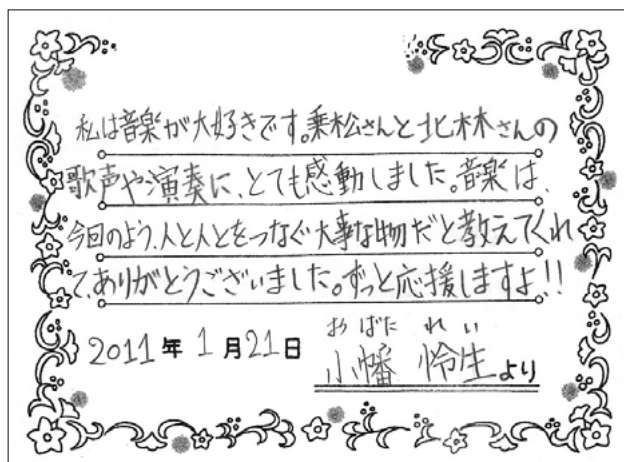 私は音楽が大好きです。乗松さんと北林さんの
歌声や演奏に、とても感動しました。音楽は、
今回のよう、人と人とをつなぐ大事な物だと教えてくれ
て、ありがとうございました。ずっと応援しますよ!!
2011年1月21日
おばた れい
小幡 怜生より